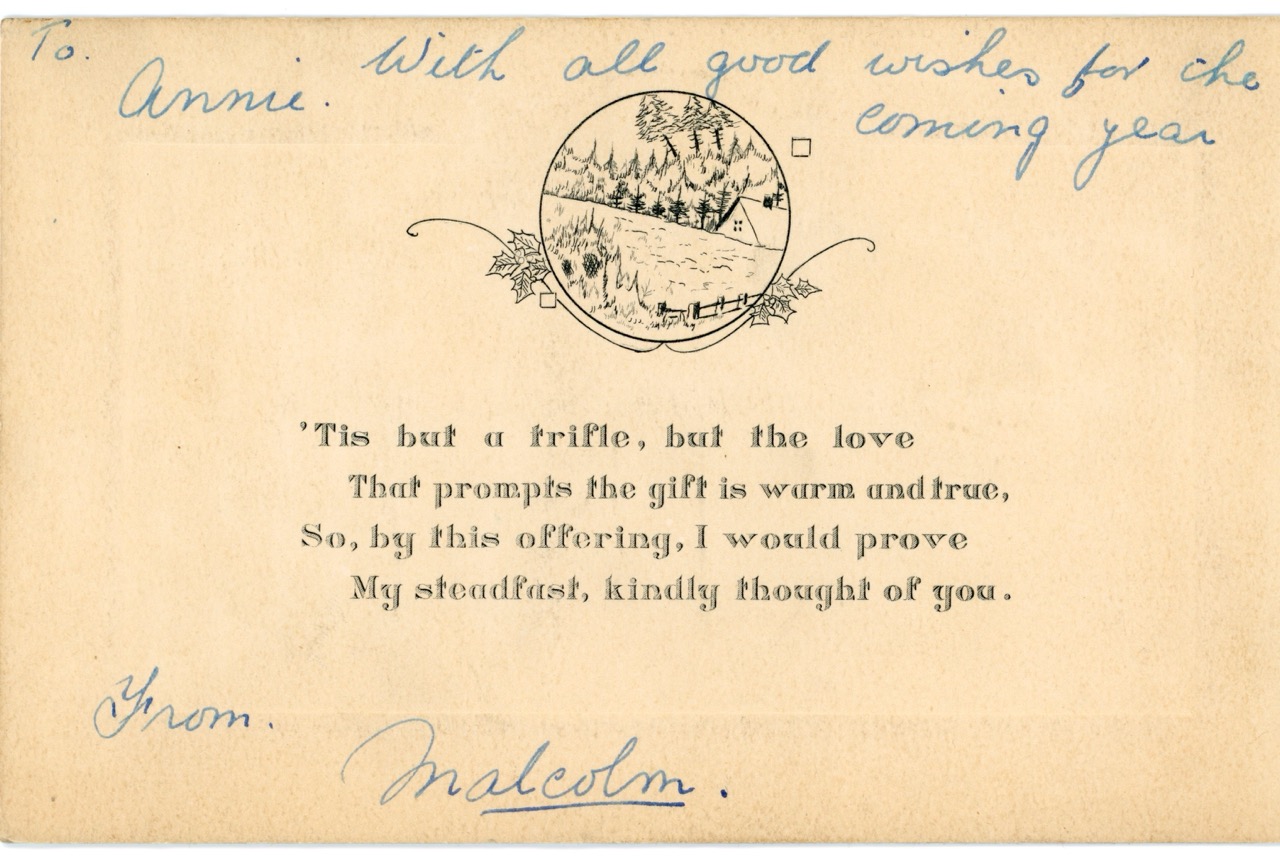 To. With all good wishes for the
Annie. coming year
'Tis but a trifle, but the love
That prompts the gift is warm and true,
So, by this offering, I would prove
My steadfast, kindly thought of you.
From.
Malcolm.